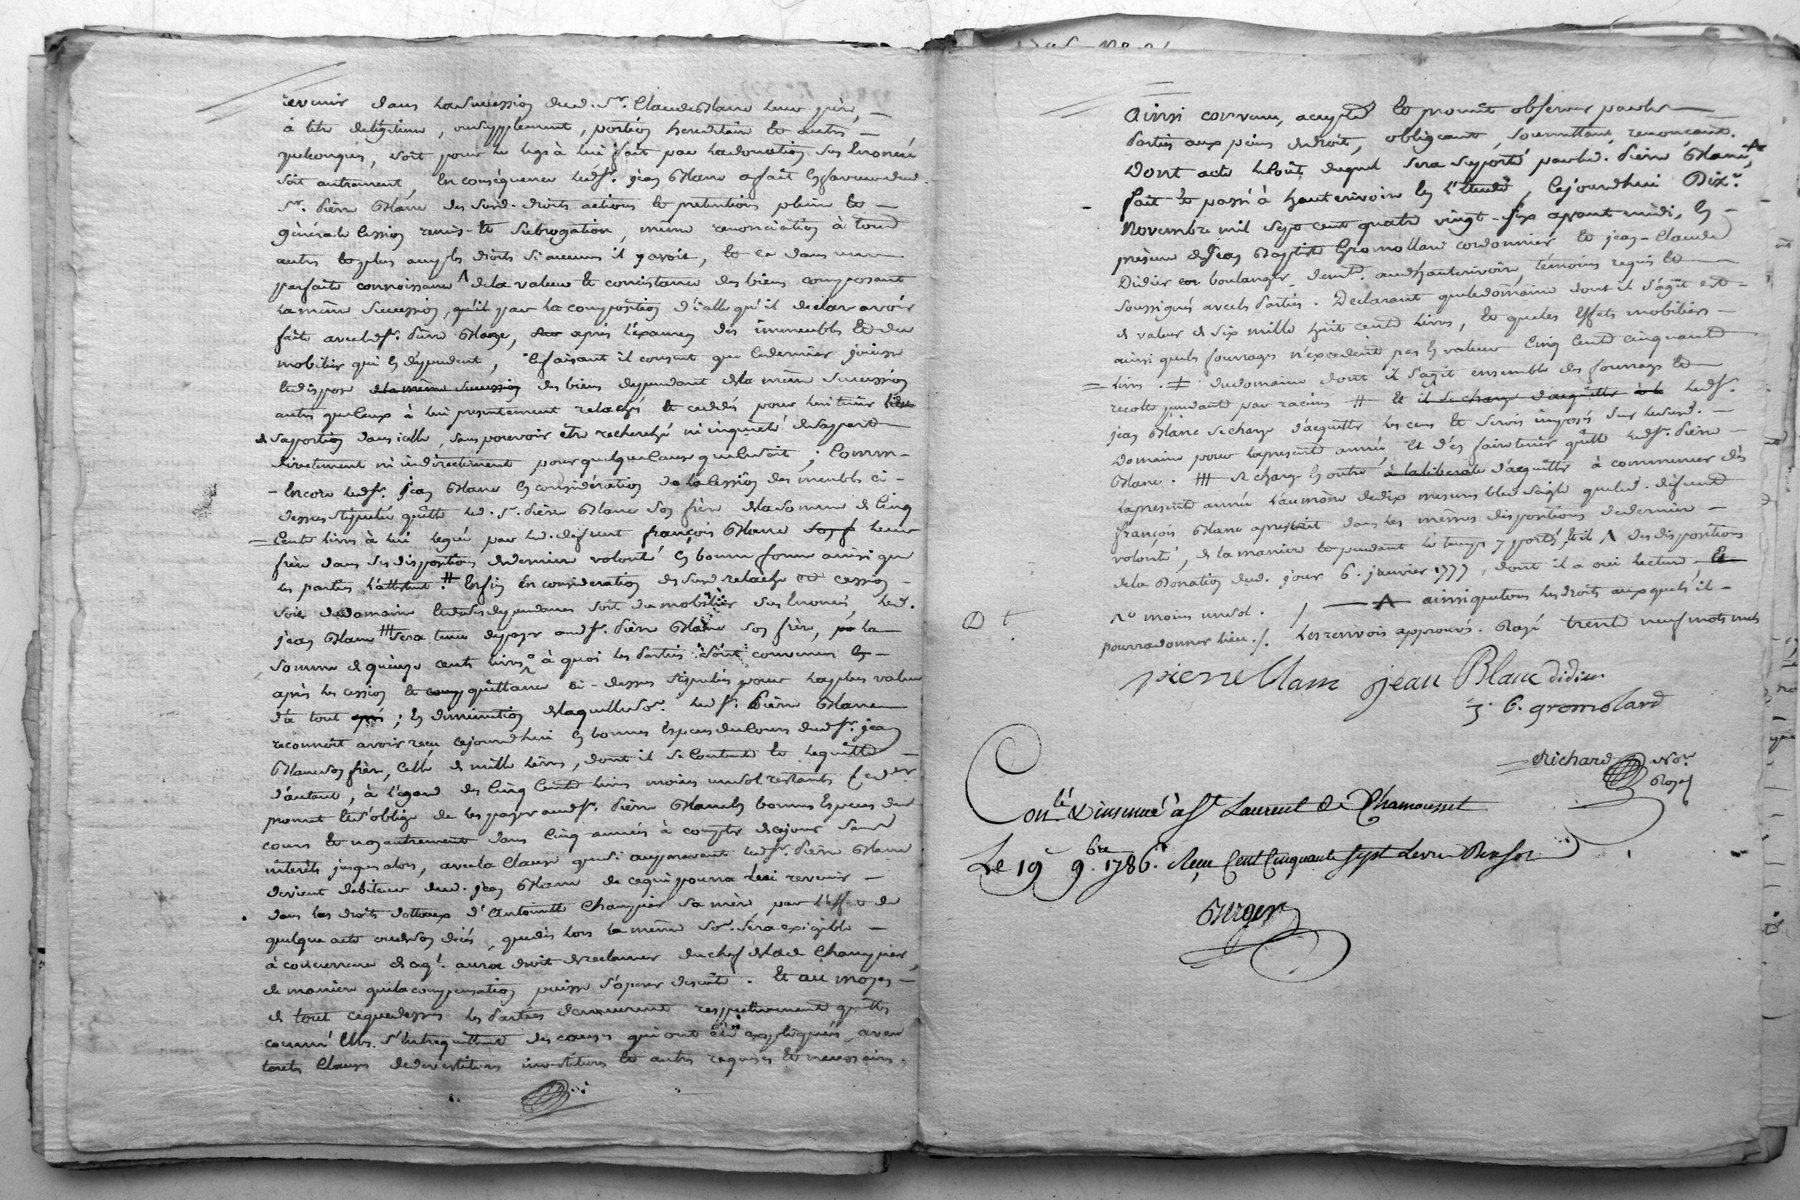 revenir dans la succession dud. Sr. Claude Blanc leur père,
à titre de légitime, ou supplement, portion hereditaire et autres
quelconques, soit pour le legs à lui fait par la donation sus énoncée
soit autrement, En conséquence led. Sr. jean Blanc a fait en faveur dud.
Sr. Pierre Blanc des susd. droits actions et prétentions pleine et
générale cession remise et subrogation, même renonciation à tous
autres et plus amples droits si aucuns il y avoit, et ce dans une
parfaite connoissance ^ de la valeur et consistance des biens composant
la même succession, que par la composition d'icelle qu'il declare avoir
faite avec led. Sr. Pierre Blanc, après l'examen des immeubles et du
mobilier qui en dependent, ce faisant il consent que ce dernier jouisse
et dispose de la même succession des biens dependant de la même succession
autres que ceux à lui presentement relachés et cedés pour lui tenir lieu
de sa portion dans icelle, sans pouvoir être recherché ni inquiété de sa part
directement ni indirectement pour quelque cause que ce soit ; Comme
Encore led. Sr. Jean Blanc en considération de la cession des meubles ci-
dessus stipulée quitte led. Sr. Pierre Blanc son frère de la somme de Cinq
Cents livres à lui leguée par led. defunt françois Blanc leur
frère dans ses dispositions de derniere volonté en bonne forme ainsi que
les parties l'attestent. # Enfin En considération des susd. relache et cession
soit du domaine et de ses dependances soit du mobilier sus énoncés, led.
jean Blanc ### sera tenu de payer aud. Sr. Pierre Blanc son frère, la
somme de quinze cents livres à quoi les Parties sont convenues
après les cession et quittance ci-dessus stipulés pour la plus value
du tout ; en diminution de laquelle So. led. Sr. Pierre Blanc
reconnoit avoir reçu cejourdhui en bonnes Especes du cours dud. Sr. jean
Blanc son frère, celle de mille livres, dont il se contente et le quitte
d'autant, à l'égard des Cinq Cents livres moins un sol restants Ce der
promet et s'oblige de les payer aud. Sr. Pierre Blanc en bonnes Especes du
cours et non autrement dans Cinq années à compter de ce jour Sans
intérêts jusqu'alors, avec la clause que si auparavant led. Sr. Pierre Blanc
devient débiteur dud. jean Blanc de ce qui pourra lui revenir
dans les droits dottaux d'Antoinette Champier sa mère par l'effet de
quelque acte ou de son décès, que dès lors la même So. sera exigible
à concurrence de ce qu'il aura droit de reclamer du chef de lad. Champier,
de manière que la compensation puisse s'opérer de suite. Et au moyen
de tout ce que dessus les Parties demeurent respectivement quittes
comme Elles s'entrequittent des causes qui ont été expliquées, avec
toutes Clauses de devestitures investitures et autres requises et necessaires.
Ainsi convenu, accepté et promit observer par les
Parties aux peines de droit, obligeant, soumettant, renonçant.
Dont acte le coût duquel sera supporté par led. Pierre Blanc,
fait et passé à hauterivoire en l'Etude, cejourdhui Dix
Novembre mil sept cent quatre vingt-six avant midi, En
présence de Jean Baptiste Gromollard cordonnier et jean-Claude
Didier boulanger demt. aud. hauterivoire, témoins requis et
Soussignés avec les Parties. Declarant que le domaine dont il s'agit est
de valeur de six mille huit cents livres, et que les effets mobiliers
ainsi que les fourrages n'excedent pas en valeur Cinq Cent cinquante
livres. ‡ du domaine dont il s'agit ensemble des fourrages et
recolte pendante par racines # Et il se charge d'acquitter à la led. Sr.
jean Blanc se charge d'acquitter les cens et servis imposés sur led. susd.
Domaine pour la presente année, Et d'en faire tenir quitte led. Sr. Pierre
Blanc. ### se charge en outre à la liberale d'acquitter à commencer dès
la presente année l'aumône de dix mesures bled seigle que led. defunt
françois Blanc a prescrit dans les mêmes dispositions de derniere
volonté, de la manière et pendant le temps y porté, et il ^ des dispositions
de la Donation dud. jour 6. janvier 1777, dont il a oui lecture
º moins un sol. / ^ ainsi que tous les droits auxquels il
pourra donner lieu ./. Les renvois approuvés. Rayé trente neuf mots nuls
Dt
pierre blanc jean Blanc didier
J. B. gromolard
Richard Nore
Royal
Conlé & insinué à St Laurent de Chamousset
Le 19 9bre 1786. Reçu Cent Cinquante sept Livres Dix sol
Berger